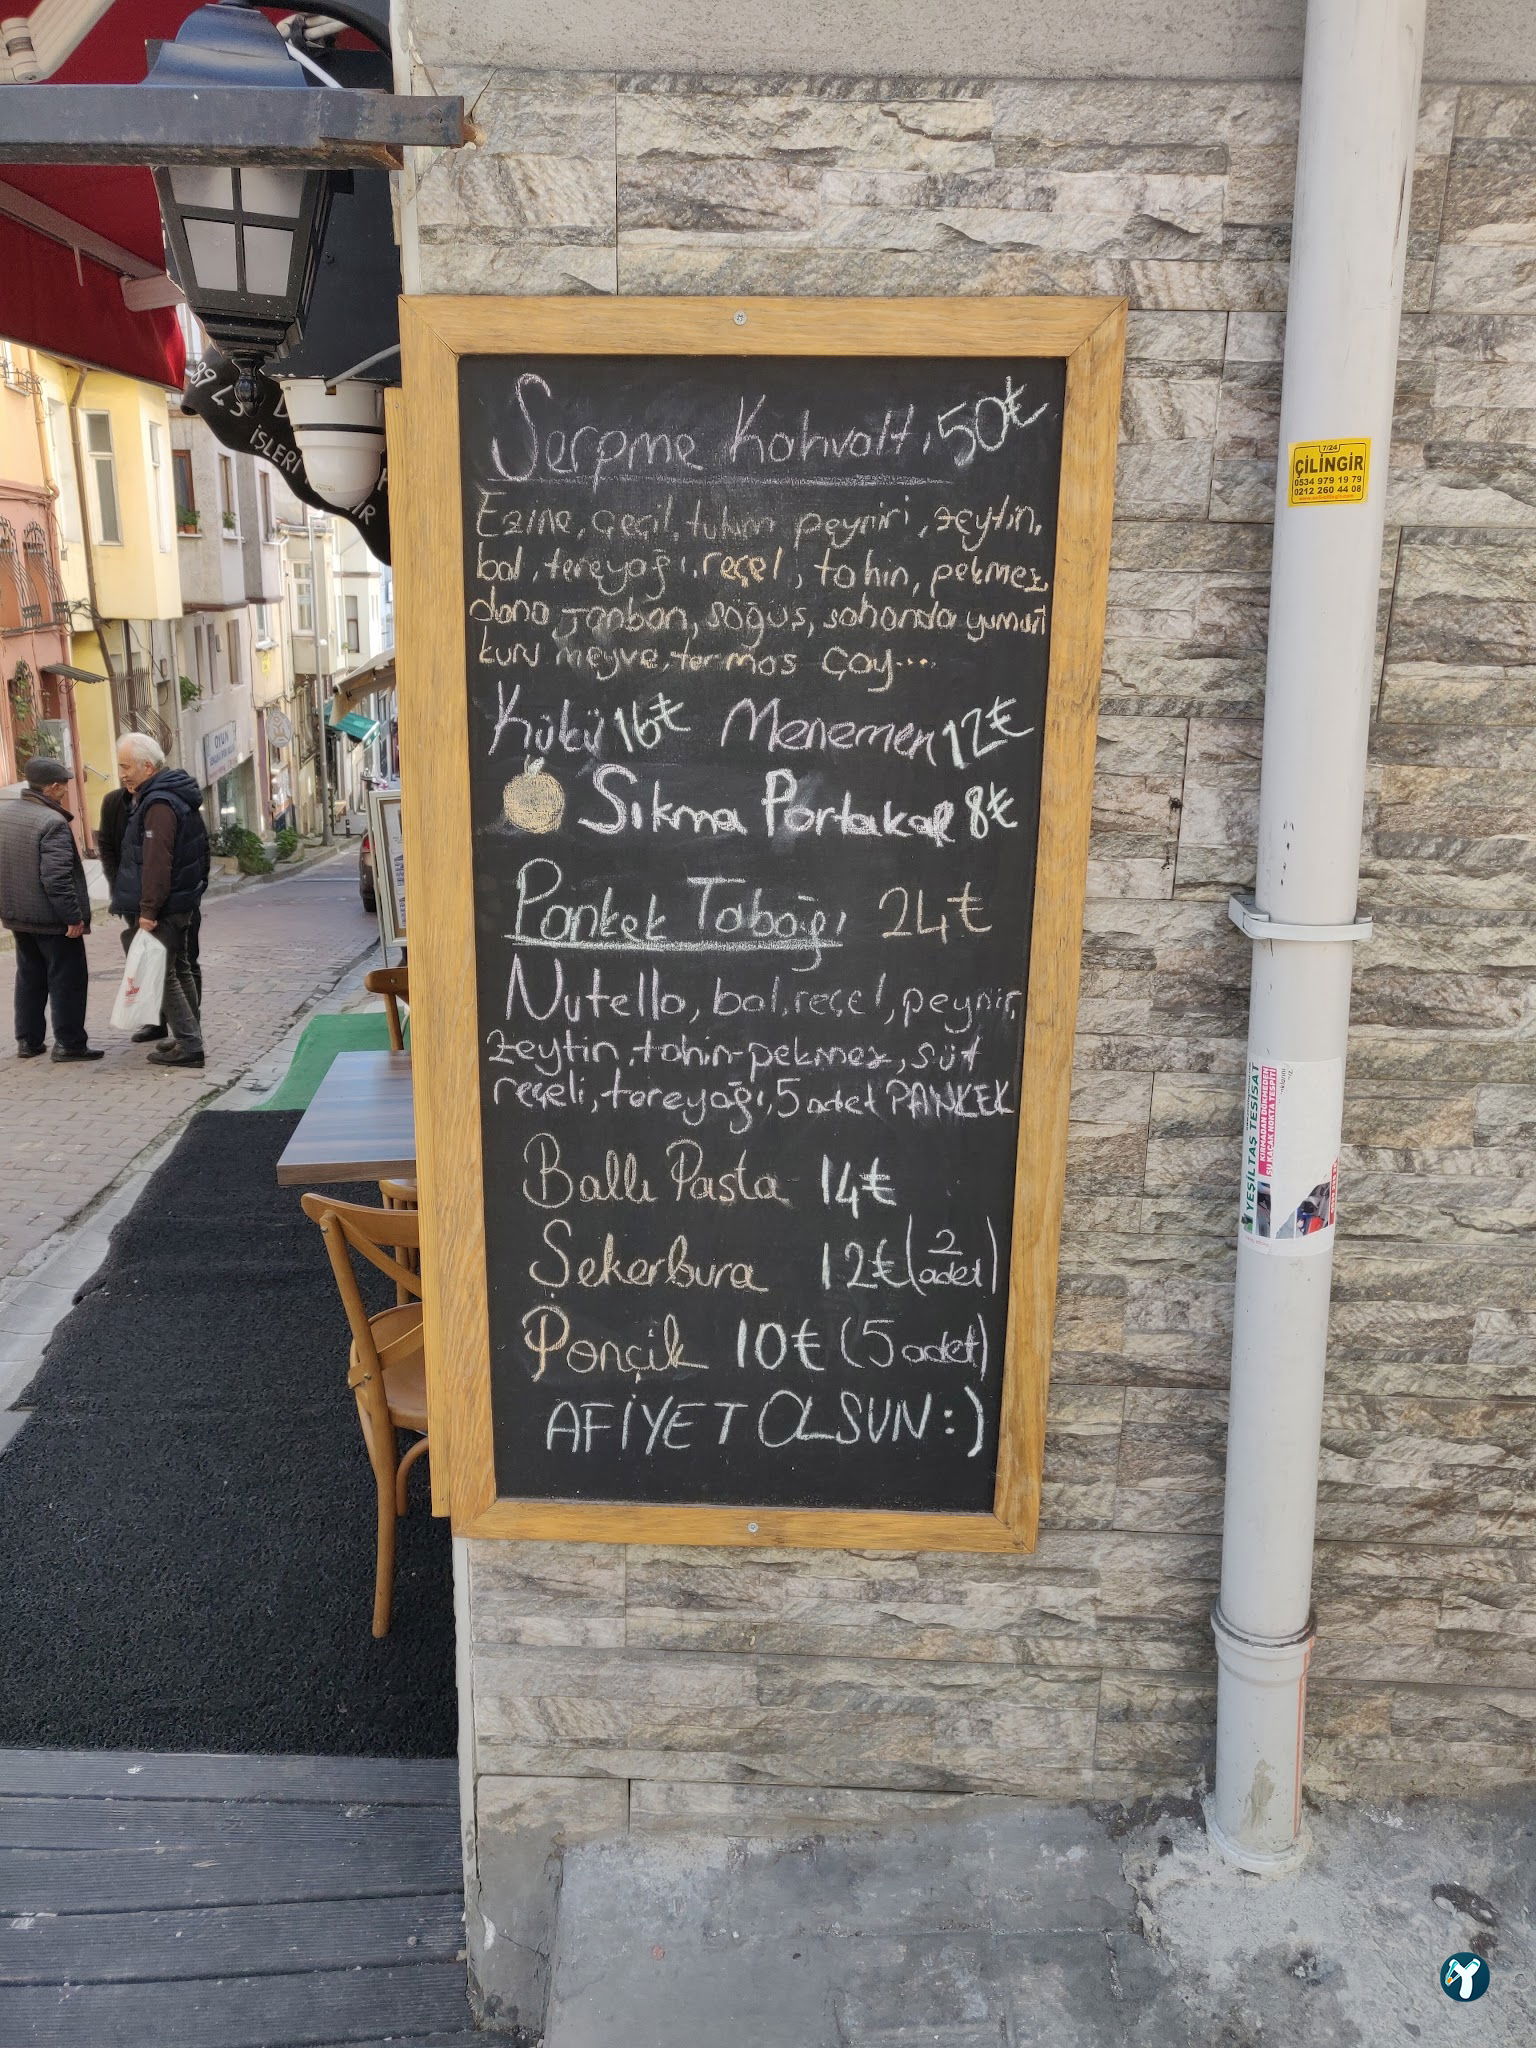 Serpme Kahvaltı 50₺
Ezine, çeçil, tulum peyniri, zeytin,
bal, tereyağı, reçel, tahin, pekmez,
dana jambon, söğüş, sahanda yumurt
kuru meyve, termos çay...
Kükü 16₺ Menemen 12₺
Sıkma Portakal 8₺
Pankek Tabağı 24₺
Nutella, bal, reçel, peynir,
zeytin, tahin-pekmez, süt
reçeli, tereyağı, 5 adet PANKEK
Ballı Pasta 14₺
Şekerbura 12₺ (2 adet)
Ponçik 10₺ (5 adet)
AFİYET OLSUN :)
7/24
ÇİLİNGİR
0534 979 19 79
0212 260 44 08
YEŞİLTAŞ TESİSAT
KIRMADAN DÖKMEDEN
SU KAÇAK NOKTA TESPİTİ
İŞLERİ
OYUN